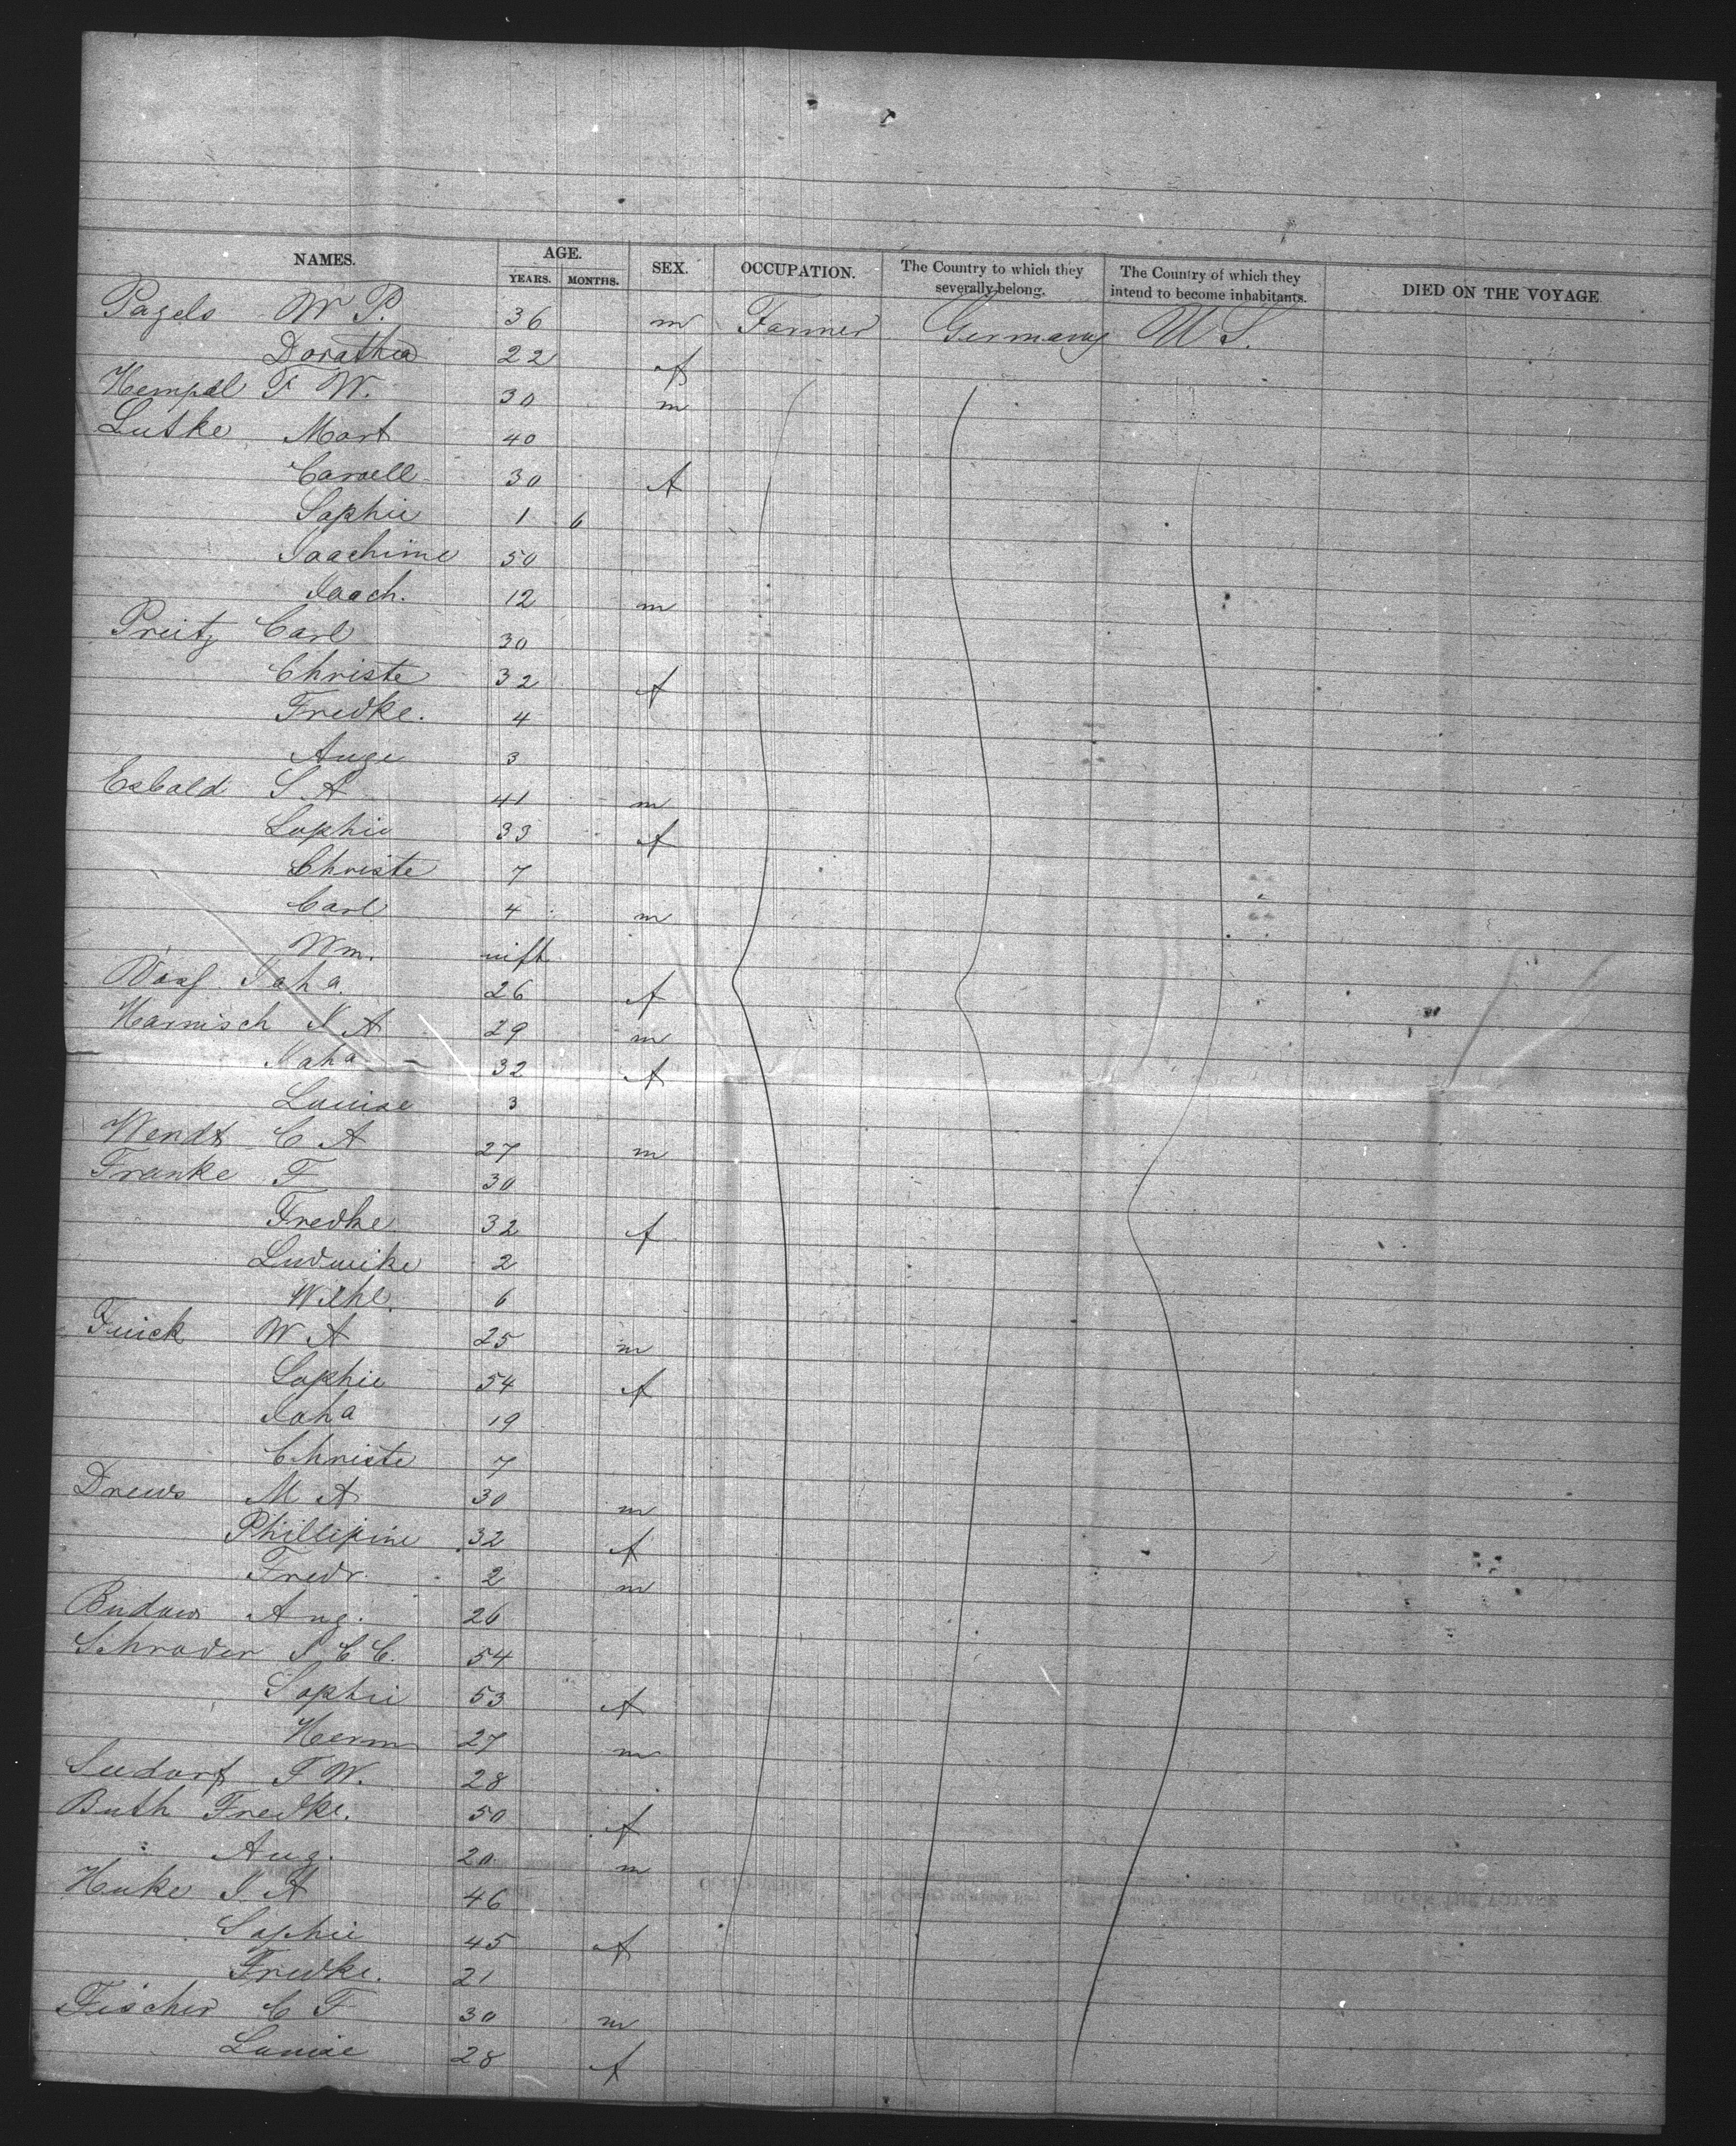 NAMES. AGE. SEX. OCCUPATION. The Country to which they severally belong. The Country of which they intend to become inhabitants. DIED ON THE VOYAGE
YEARS. MONTHS.
Pagels W P. 36 m Farmer Germany U S.
Dorathea 22 f
Hempel F W. 30 m
Lutke Mart 40
Caroell 30 f
Sophie 1 6
Joachime 50
Joach. 12 m
Preitz Carl 30
Christe 32 f
Fredke. 4
Auge 3
Esbald J A 41 m
Sophie 33 f
Christe 7
Carl 4 m
Wm. inft
Joha. 26 f
Harnisch J A 29 m
Joha 32 f
Louise 3
Wendt C A 27 m
Franke F 30
Fredke 32 f
Ludwike 2
Wilhe. 6
Fuick W A 25 m
Sophie 54 f
Joha 19
Christe 7
Drews M A 30 m
Phillipine 32 f
Fredr. 2 m
Budow Aug. 26
Schroder J C C. 54
Sophie 53 f
Herm 27 m
Seedorf F W. 28
Buth Fredke. 50 f
" Aug. 20 m
Huke J A 46
Sophie 45 f
Fredke. 21
Fischer C F 30 m
Louise 28 f